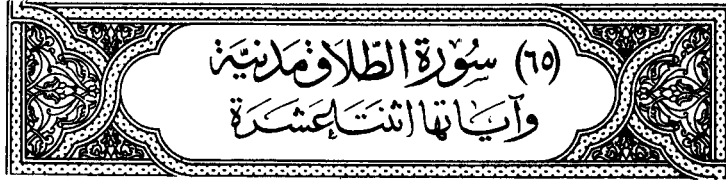 (٦٥) سُوْرَة الطَّلَاقِ مَدَنِيَّة
وَآيَاتُهَا اثْنَتَا عَشَرَة